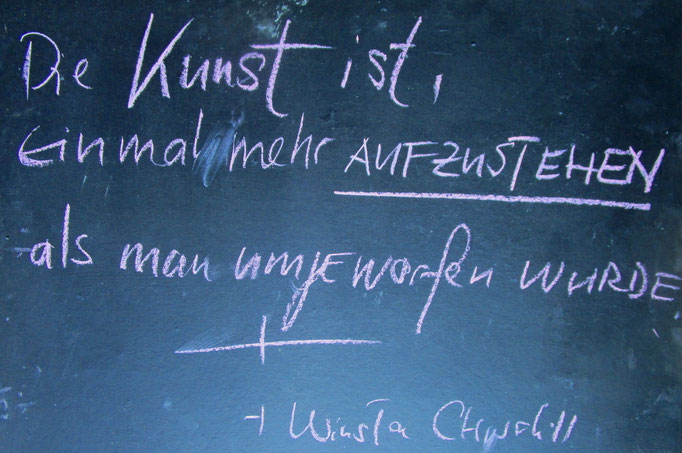 Die Kunst ist,
einmal mehr AUFZUSTEHEN
als man umgeworfen WURDE.
+ Winston Churchill